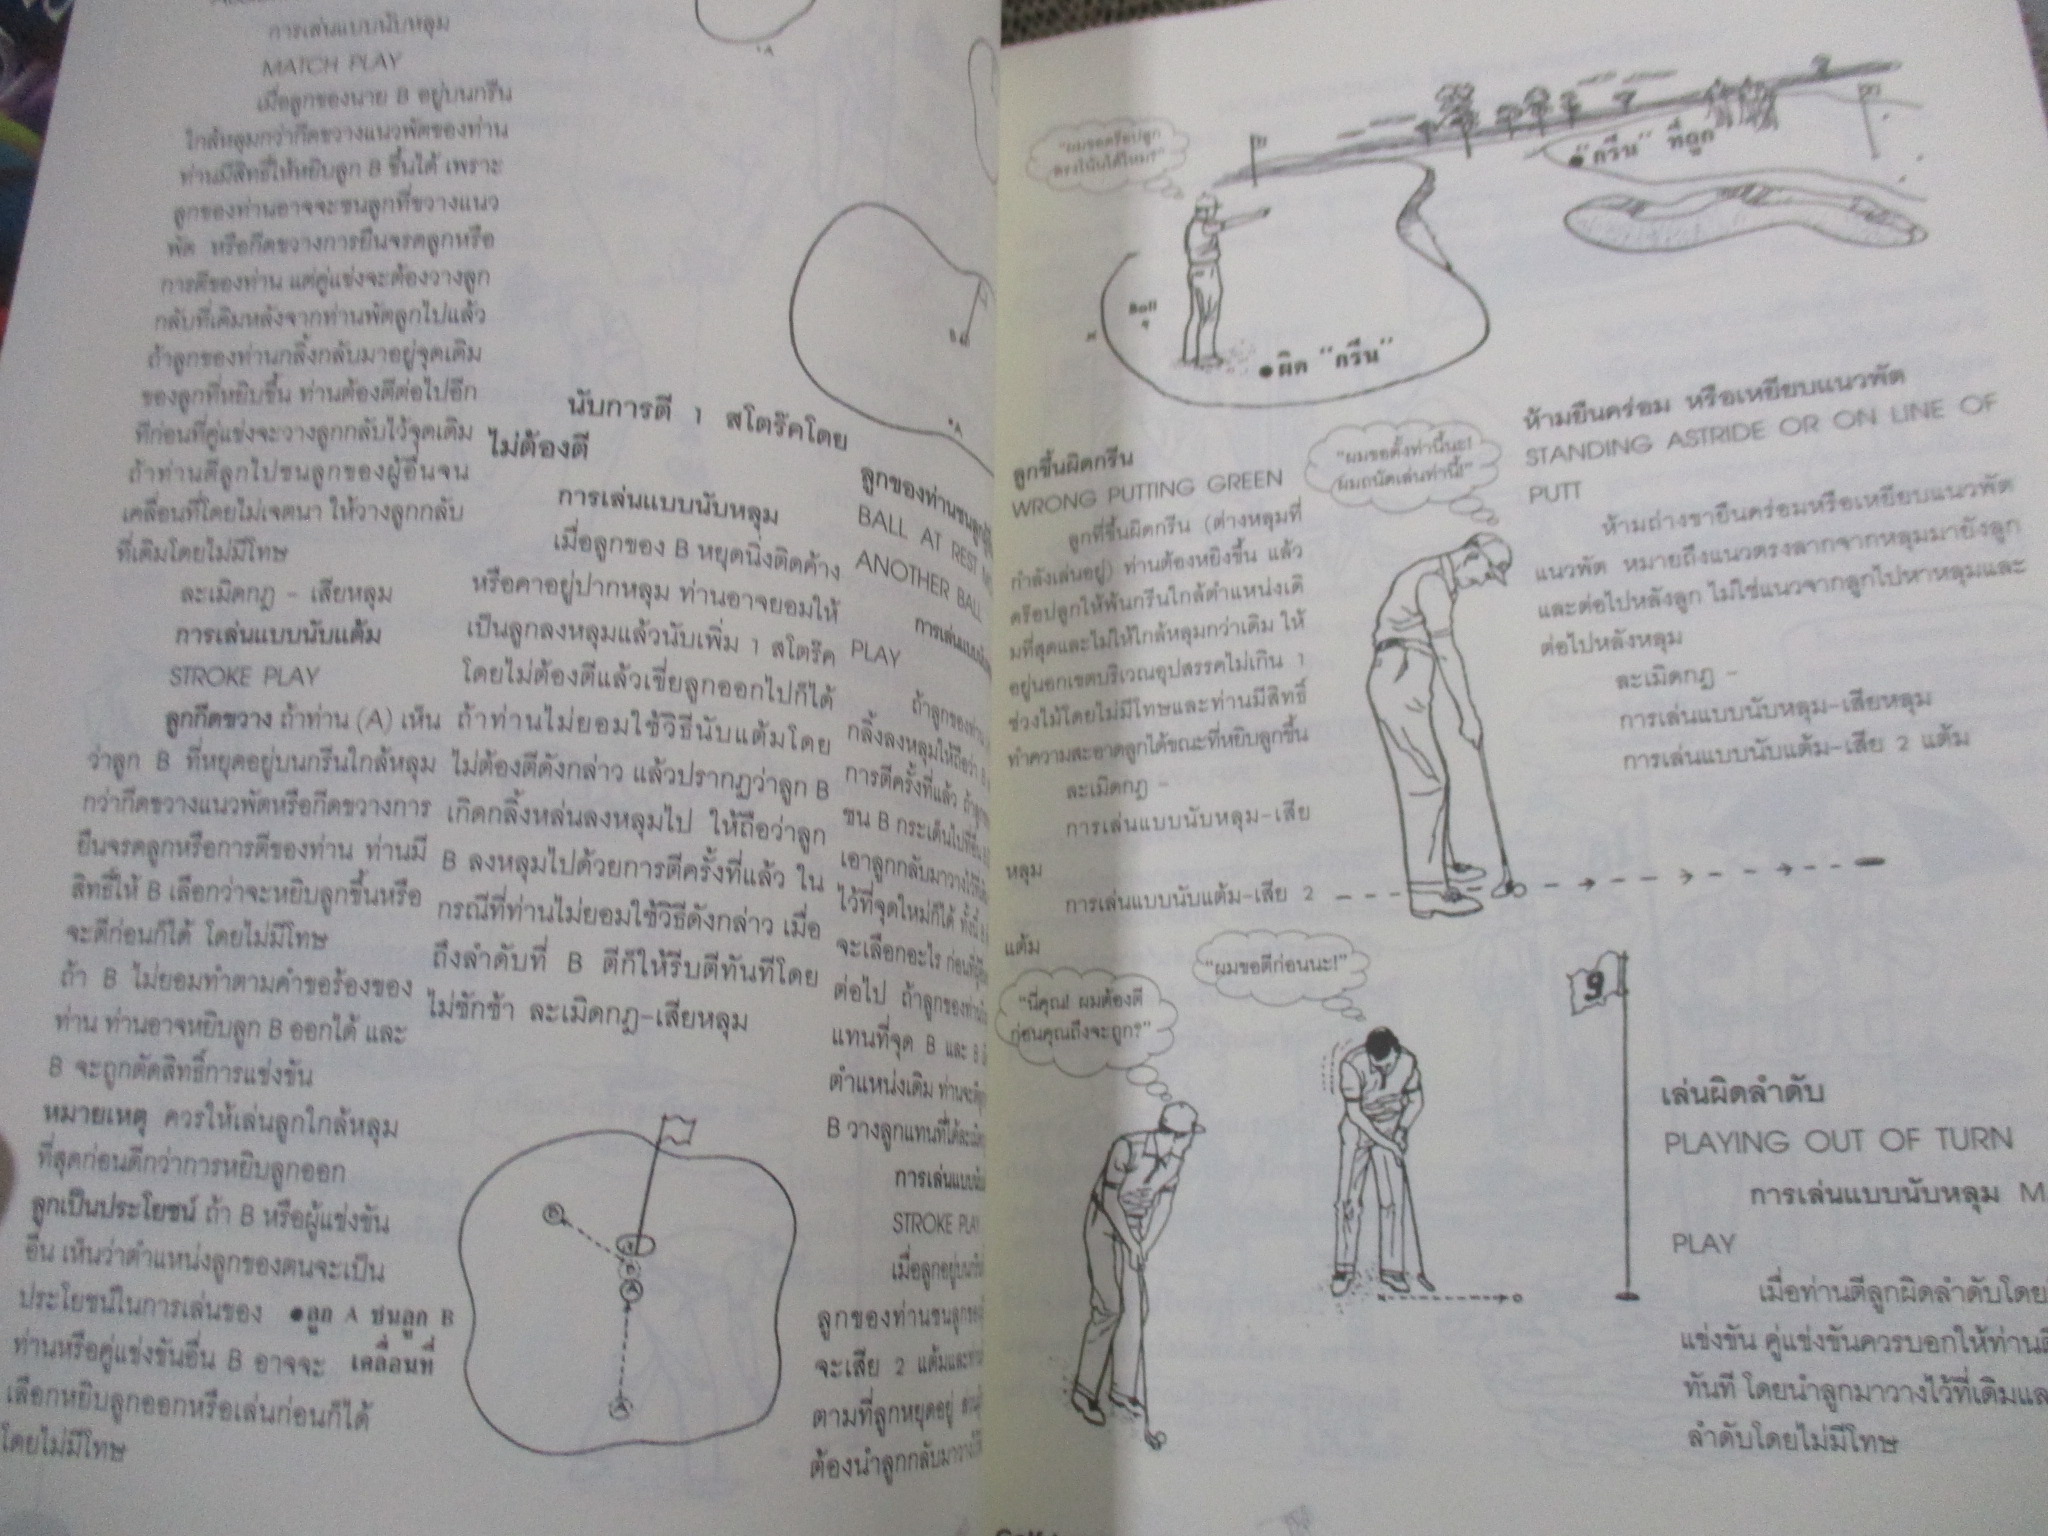 การเล่นแบบนับหลุม
MATCH PLAY
เมื่อลูกของนาย B อยู่บนกรีน
ใกล้หลุมกว่ากีดขวางแนวพัตของท่าน
ท่านมีสิทธิ์ให้หยิบลูก B ขึ้นได้ เพราะ
ลูกของท่านอาจจะชนลูกที่ขวางแนว
พัต หรือกีดขวางการยืนจรดลูกหรือ
การตีของท่าน แต่คู่แข่งจะต้องวางลูก
กลับที่เดิมหลังจากท่านพัตลูกไปแล้ว
ถ้าลูกของท่านกลิ้งกลับมาอยู่จุดเดิม
ของลูกที่หยิบขึ้น ท่านต้องตีต่อไปอีก
ทีก่อนที่คู่แข่งจะวางลูกกลับไว้จุดเดิม
ถ้าท่านตีลูกไปชนลูกของผู้อื่นจน
เคลื่อนที่โดยไม่เจตนา ให้วางลูกกลับ
ที่เดิมโดยไม่มีโทษ
ละเมิดกฎ - เสียหลุม
การเล่นแบบนับแต้ม
STROKE PLAY
ลูกกีดขวาง ถ้าท่าน (A) เห็น
ว่าลูก B ที่หยุดอยู่บนกรีนใกล้หลุม
กว่ากีดขวางแนวพัตหรือกีดขวางการ
ยืนจรดลูกหรือการตีของท่าน ท่านมี
สิทธิ์ให้ B เลือกว่าจะหยิบลูกขึ้นหรือ
จะตีก่อนก็ได้ โดยไม่มีโทษ
ถ้า B ไม่ยอมทำตามคำขอร้องของ
ท่าน ท่านอาจหยิบลูก B ออกได้ และ
B จะถูกตัดสิทธิ์การแข่งขัน
หมายเหตุ ควรให้เล่นลูกใกล้หลุม
ที่สุดก่อนดีกว่าการหยิบลูกออก
ลูกเป็นประโยชน์ ถ้า B หรือผู้แข่งขัน
อื่น เห็นว่าตำแหน่งลูกของตนจะเป็น
ประโยชน์ในการเล่นของ
ท่านหรือคู่แข่งขันอื่น B อาจจะ
เลือกหยิบลูกออกหรือเล่นก่อนก็ได้
โดยไม่มีโทษ
●ลูก A ชนลูก B
เคลื่อนที่
นับการตี 1 สโตร๊คโดย
ไม่ต้องตี
การเล่นแบบนับหลุม
เมื่อลูกของ B หยุดนิ่งติดค้าง
หรือคาอยู่ปากหลุม ท่านอาจยอมให้
เป็นลูกลงหลุมแล้วนับเพิ่ม 1 สโตร๊ค
โดยไม่ต้องตีแล้วเขี่ยลูกออกไปก็ได้
ถ้าท่านไม่ยอมใช้วิธีนับแต้มโดย
ไม่ต้องตีดังกล่าว แล้วปรากฏว่าลูก B
เกิดกลิ้งหล่นลงหลุมไป ให้ถือว่าลูก
B ลงหลุมไปด้วยการตีครั้งที่แล้ว ใน
กรณีที่ท่านไม่ยอมใช้วิธีดังกล่าว เมื่อ
ถึงลำดับที่ B ตีก็ให้รีบตีทันทีโดย
ไม่ชักช้า ละเมิดกฎ-เสียหลุม
A
B
A
ลูกของท่านชนลูก
BALL AT REST
ANOTHER BALL
PLAY
ถ้าลูกของท่าน
กลิ้งลงหลุมให้ถือว่า
การตีครั้งที่แล้ว
ชน B กระเด็นไปที่อื่น
เอาลูกกลับมาวางไว้
ไว้ที่จุดใหม่ก็ได้ ทั้งนี้
จะเลือกอะไร
ต่อไป ถ้าลูกของท่าน
แทนที่จุด B และ B
ตำแหน่งเดิม
B วางลูกแทนที่ได้
STROKE PLAY
เมื่อลูกอยู่บน
ลูกของท่านชนลูก
จะเสีย 2 แต้มและ
ตามที่ลูกหยุดอยู่
ต้องนำลูกกลับมาวาง
"ผมขอดร๊อปลูก
ตรงโน้นได้ไหม?"
●"กรีน" ที่ถูก
Ball
●ผิด "กรีน"
ลูกขึ้นผิดกรีน
WRONG PUTTING GREEN
ลูกที่ขึ้นผิดกรีน (ต่างหลุมที่
กำลังเล่นอยู่) ท่านต้องหยิงขึ้น แล้ว
ดร๊อปลูกให้พ้นกรีนใกล้ตำแหน่งเดิ
มที่สุดและไม่ให้ใกล้หลุมกว่าเดิม ให้
อยู่นอกเขตบริเวณอุปสรรคไม่เกิน 1
ช่วงไม้โดยไม่มีโทษและท่านมีสิทธิ์
ทำความสะอาดลูกได้ขณะที่หยิบลูกขึ้น
ละเมิดกฎ -
การเล่นแบบนับหลุม-เสีย
หลุม
การเล่นแบบนับแต้ม-เสีย 2
แต้ม
"ผมขอตั้งท่านี้นะ!
ผมถนัดเล่นท่านี้!"
ห้ามยืนคร่อม หรือเหยียบแนวพัต
STANDING ASTRIDE OR ON LINE OF
PUTT
ห้ามถ่างขายืนคร่อมหรือเหยียบแนวพัต
แนวพัต หมายถึงแนวตรงลากจากหลุมมายังลูก
และต่อไปหลังลูก ไม่ใช่แนวจากลูกไปหาหลุมและ
ต่อไปหลังหลุม
ละเมิดกฎ -
การเล่นแบบนับหลุม-เสียหลุม
การเล่นแบบนับแต้ม-เสีย 2 แต้ม
"นี่คุณ! ผมต้องตี
ก่อนคุณถึงจะถูก?"
"ผมขอตีก่อนนะ!"
9
เล่นผิดลำดับ
PLAYING OUT OF TURN
การเล่นแบบนับหลุม M
PLAY
เมื่อท่านตีลูกผิดลำดับโดย
แข่งขัน คู่แข่งขันควรบอกให้ท่าน
ทันที โดยนำลูกมาวางไว้ที่เดิม
ลำดับโดยไม่มีโทษ